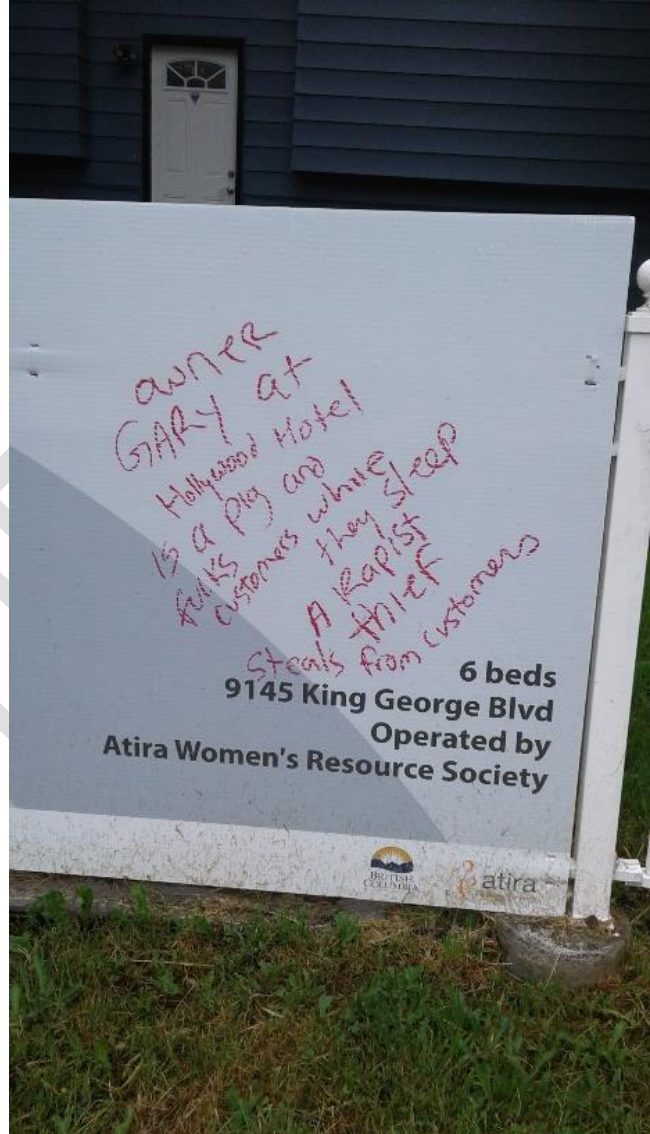 owner
GARY at
Hollywood Hotel
is a pig and
fucks
customers while
they sleep
A Rapist
thief
Steals from customers
6 beds
9145 King George Blvd
Operated by
Atira Women's Resource Society
BRITISH
COLUMBIA
atira